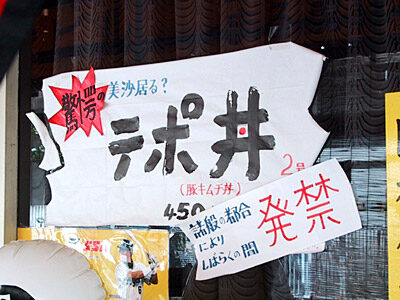 驚愕の
美沙居る?
テポ丼
2号
(豚キムチ丼)
450
諸般の都合
により
しばらくの間
発禁